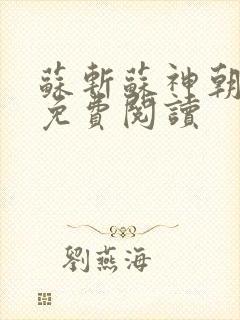 蘇斬蘇神朝
免費閱讀
劉燕海